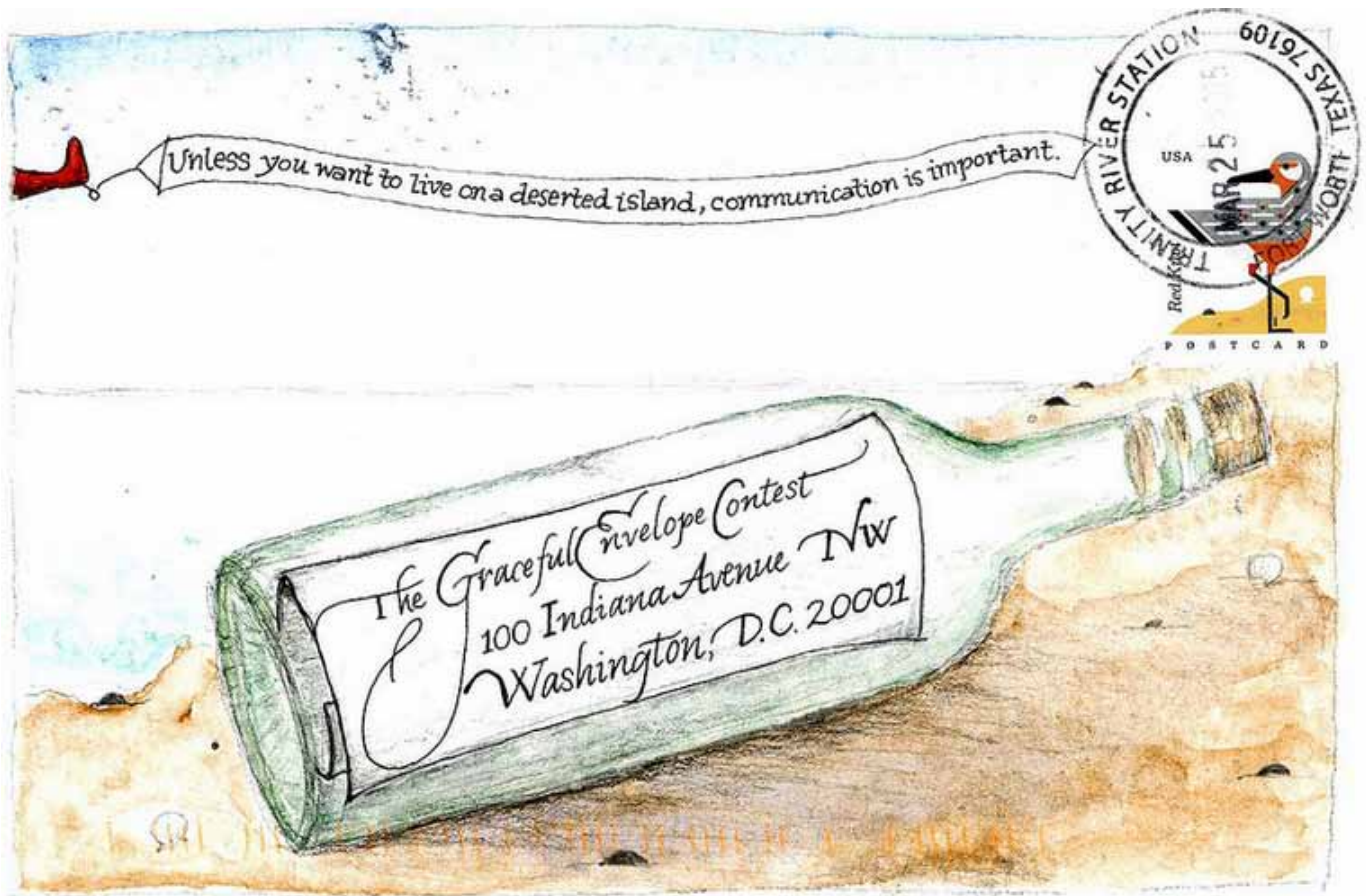 Unless you want to live on a deserted island, communication is important.
TRINITY RIVER STATION
FORT WORTH TEXAS 76109
USA
MAR 25
Red
POSTCARD
The Graceful Envelope Contest
100 Indiana Avenue NW
Washington, D.C. 20001